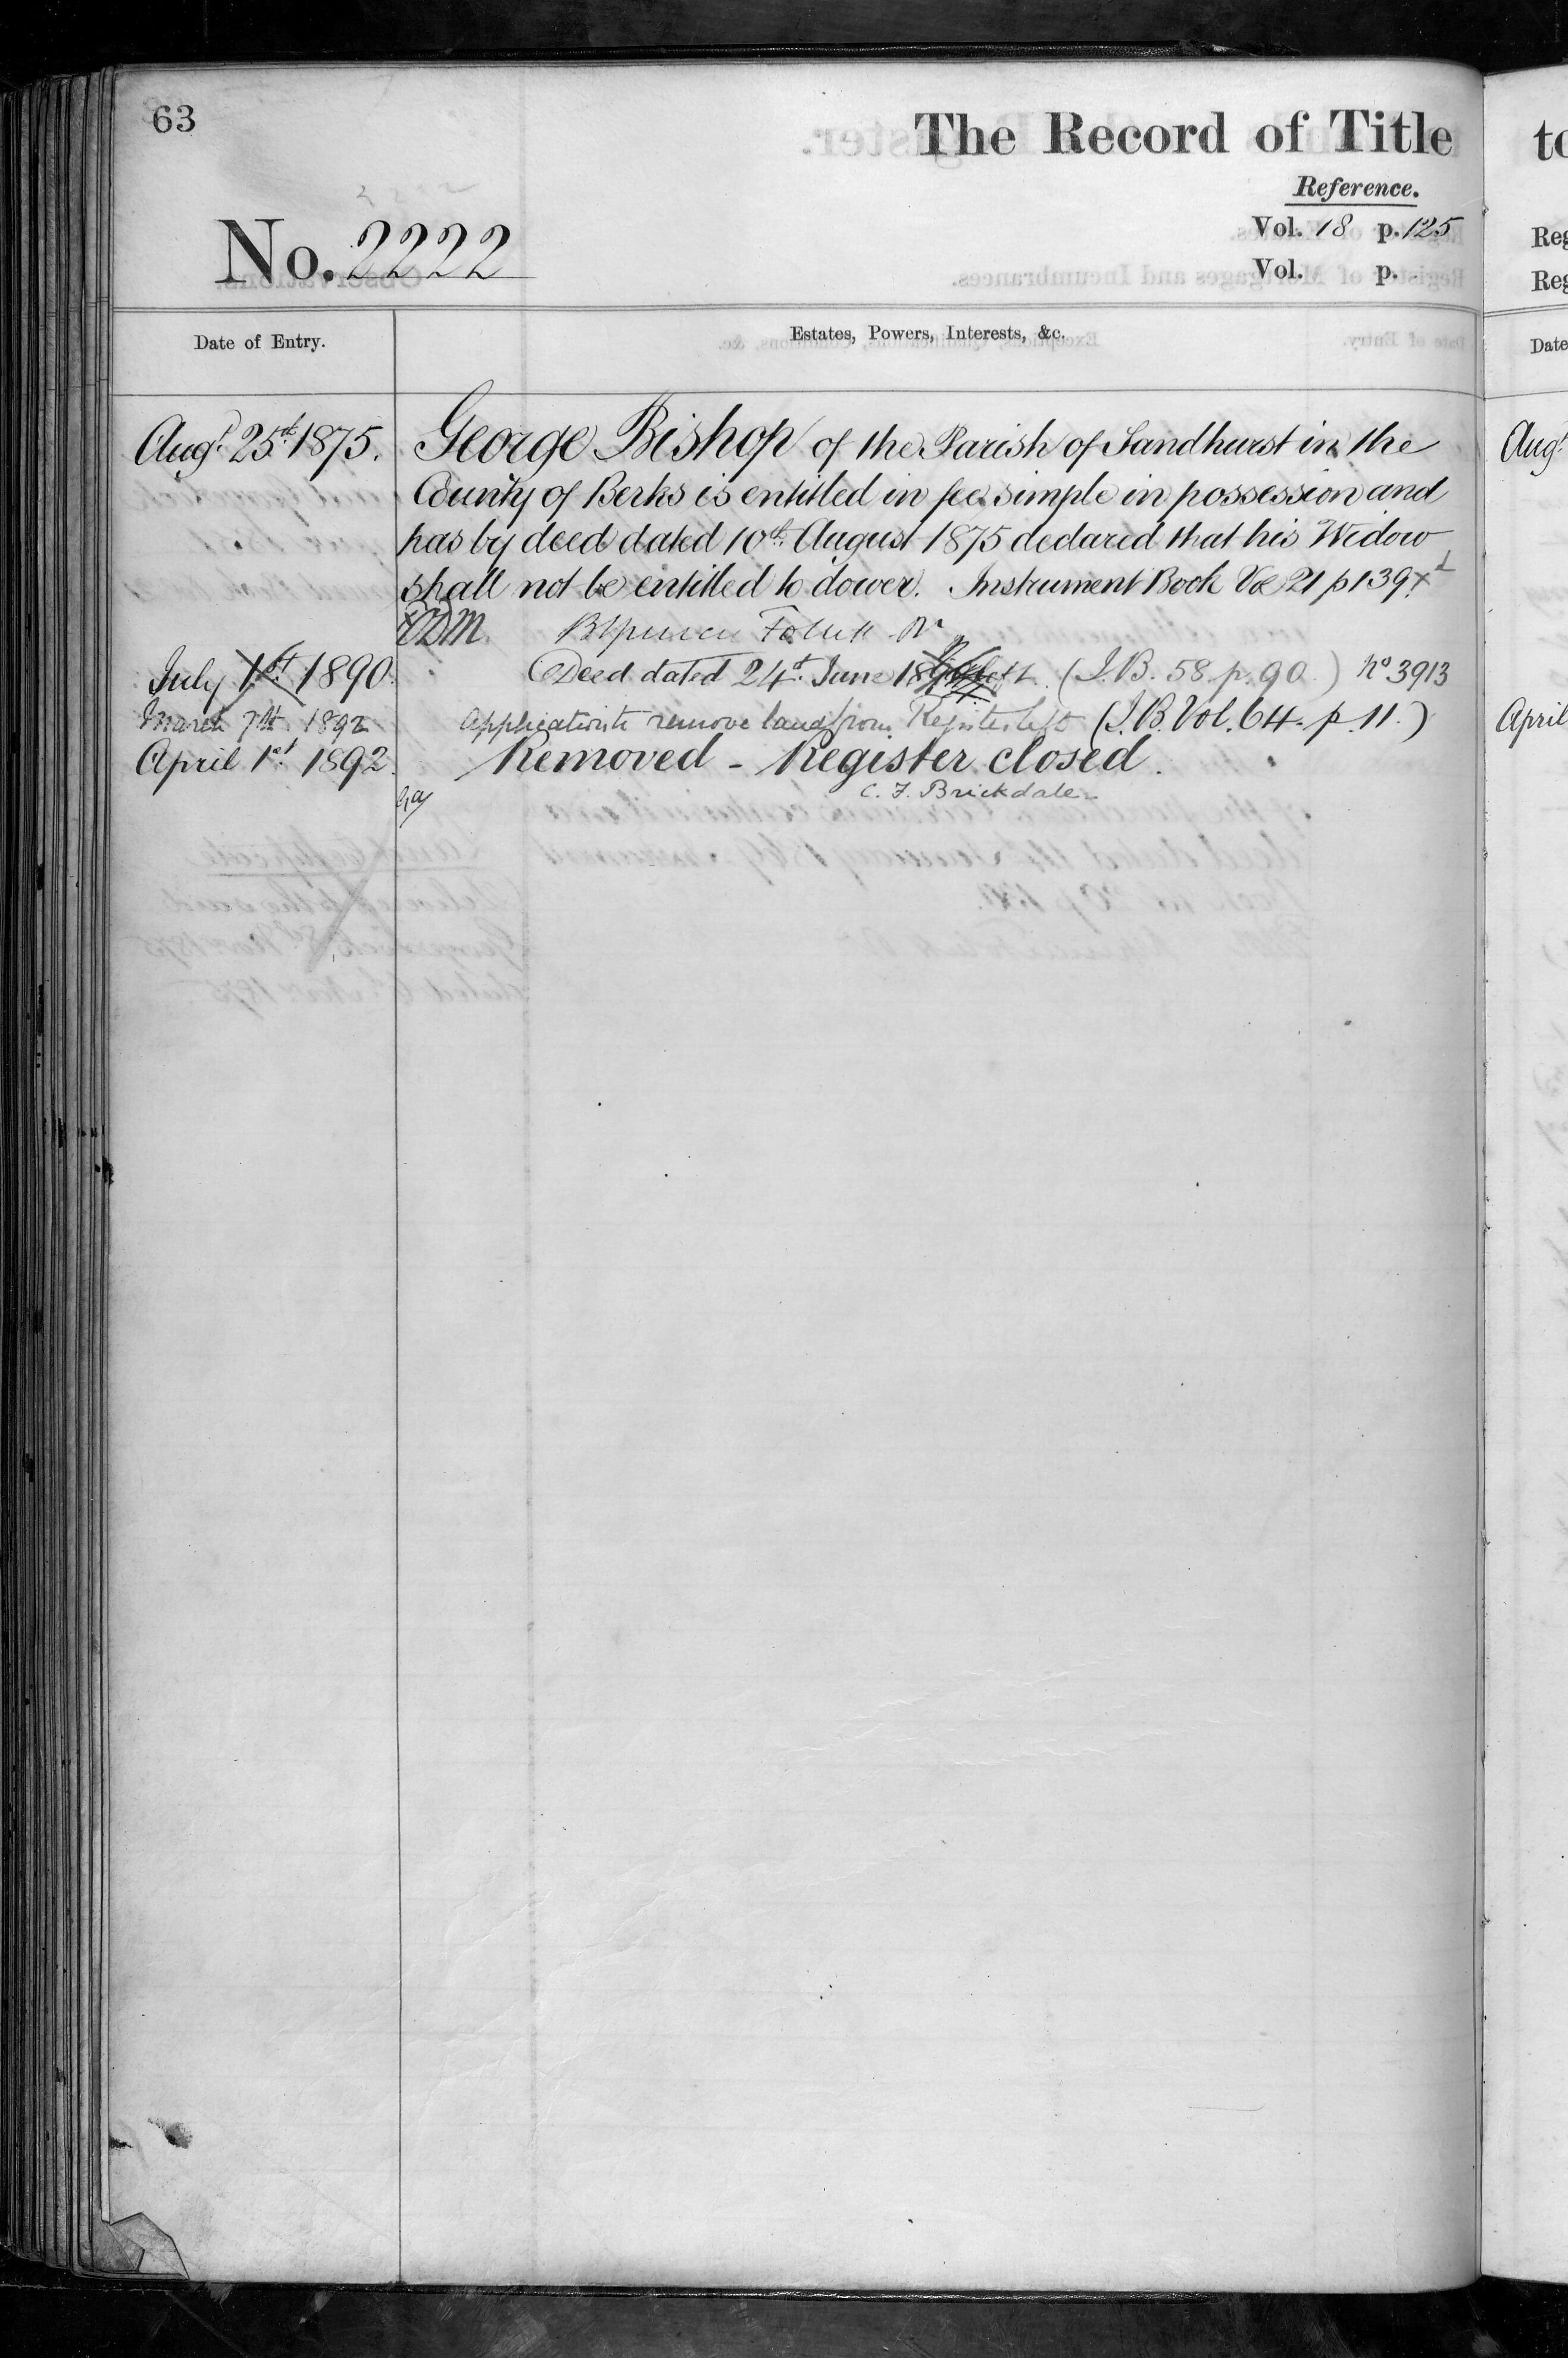 63
The Record of Title
Reference.
No. 2222
Vol. 18 p. 125
Vol. p.
Date of Entry.
Estates, Powers, Interests, &c.
Augt. 25th 1875.
George Bishop of the Parish of Sandhurst in the
County of Berks is entitled in fee simple in possession and
has by deed dated 10th August 1875 declared that his Widow
shall not be entitled to dower. Instrument Book Vol 21 p 139
July 1st 1890.
Deed dated 24th June 1890 (I.B. 58. p. 90.) No 3913
March 7th 1892
Application to remove land from Register left (I.B. Vol. 64. p. 11.)
April 1st 1892.
Removed - Register closed.
C. F. Brickdale
to
Reg
Reg
Date
Augt
April